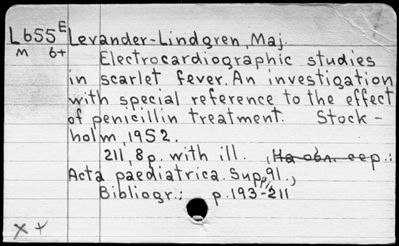 L655E Levander-Lindgren, Maj
M 6+ Electrocardiographic studies
in scarlet fever. An investigation
with special reference to the effect
of penicillin treatment. Stock-
holm, 1952.
211, 8 p. with ill. , На обл. сер.:
Acta paediatrica. Sup. 91.,
Bibliogr.: p. 193-211
x +